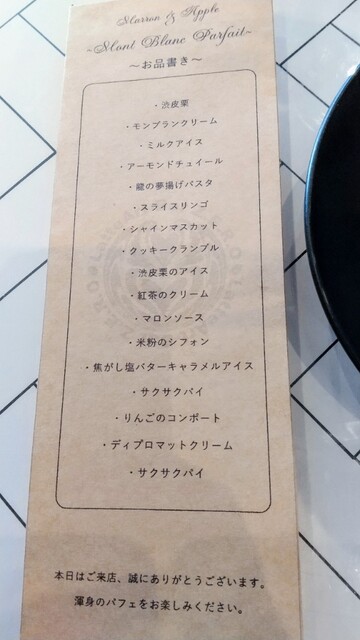 Marron & Apple
~Mont Blanc Parfait~
～お品書き～
・渋皮栗
・モンブランクリーム
・ミルクアイス
・アーモンドチュイール
・龍の夢揚げパスタ
・スライスリンゴ
・シャインマスカット
・クッキークランブル
・渋皮栗のアイス
・紅茶のクリーム
・マロンソース
・米粉のシフォン
・焦がし塩バターキャラメルアイス
・サクサクパイ
・りんごのコンポート
・ディプロマットクリーム
・サクサクパイ
本日はご来店、誠にありがとうございます。
渾身のパフェをお楽しみください。